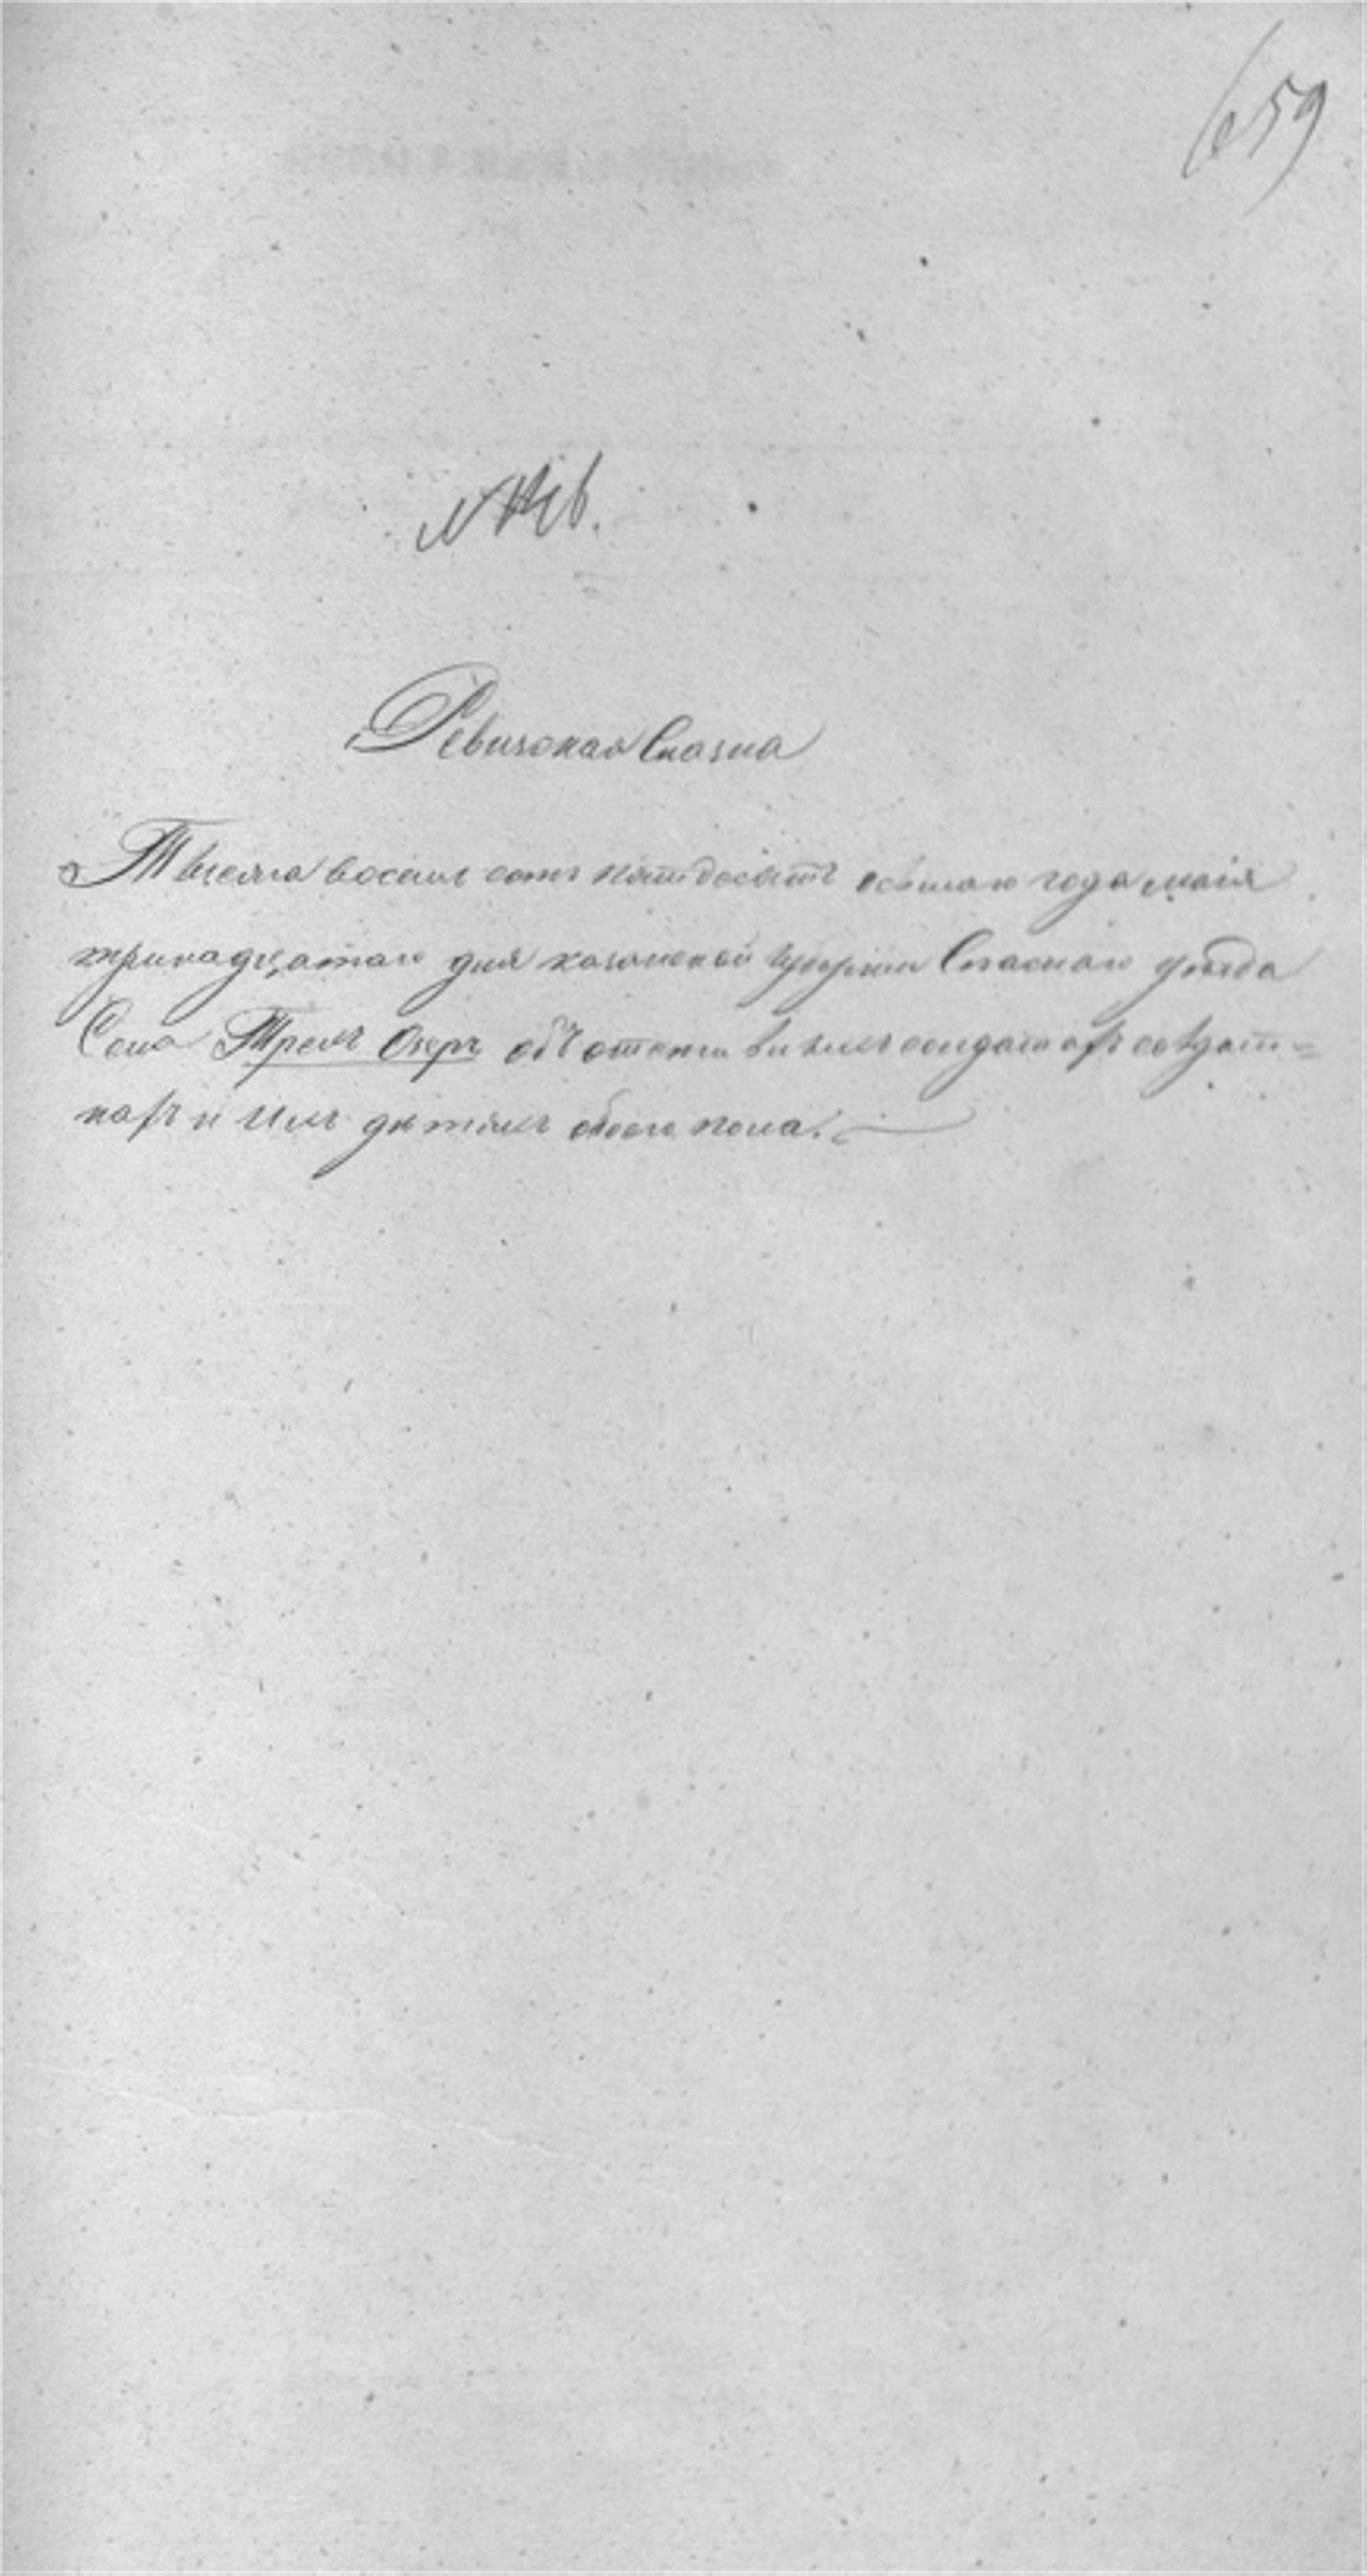 659
Ревизская Сказка
Тысяча восемь сотъ пятьдесятъ осьмаго года маія
тринадцатаго дня казанской губерніи Спаскаго уѣзда
Села Трехъ Озеръ объ солдатахъ солдат=
кахъ и ихъ дѣтяхъ обоего пола.